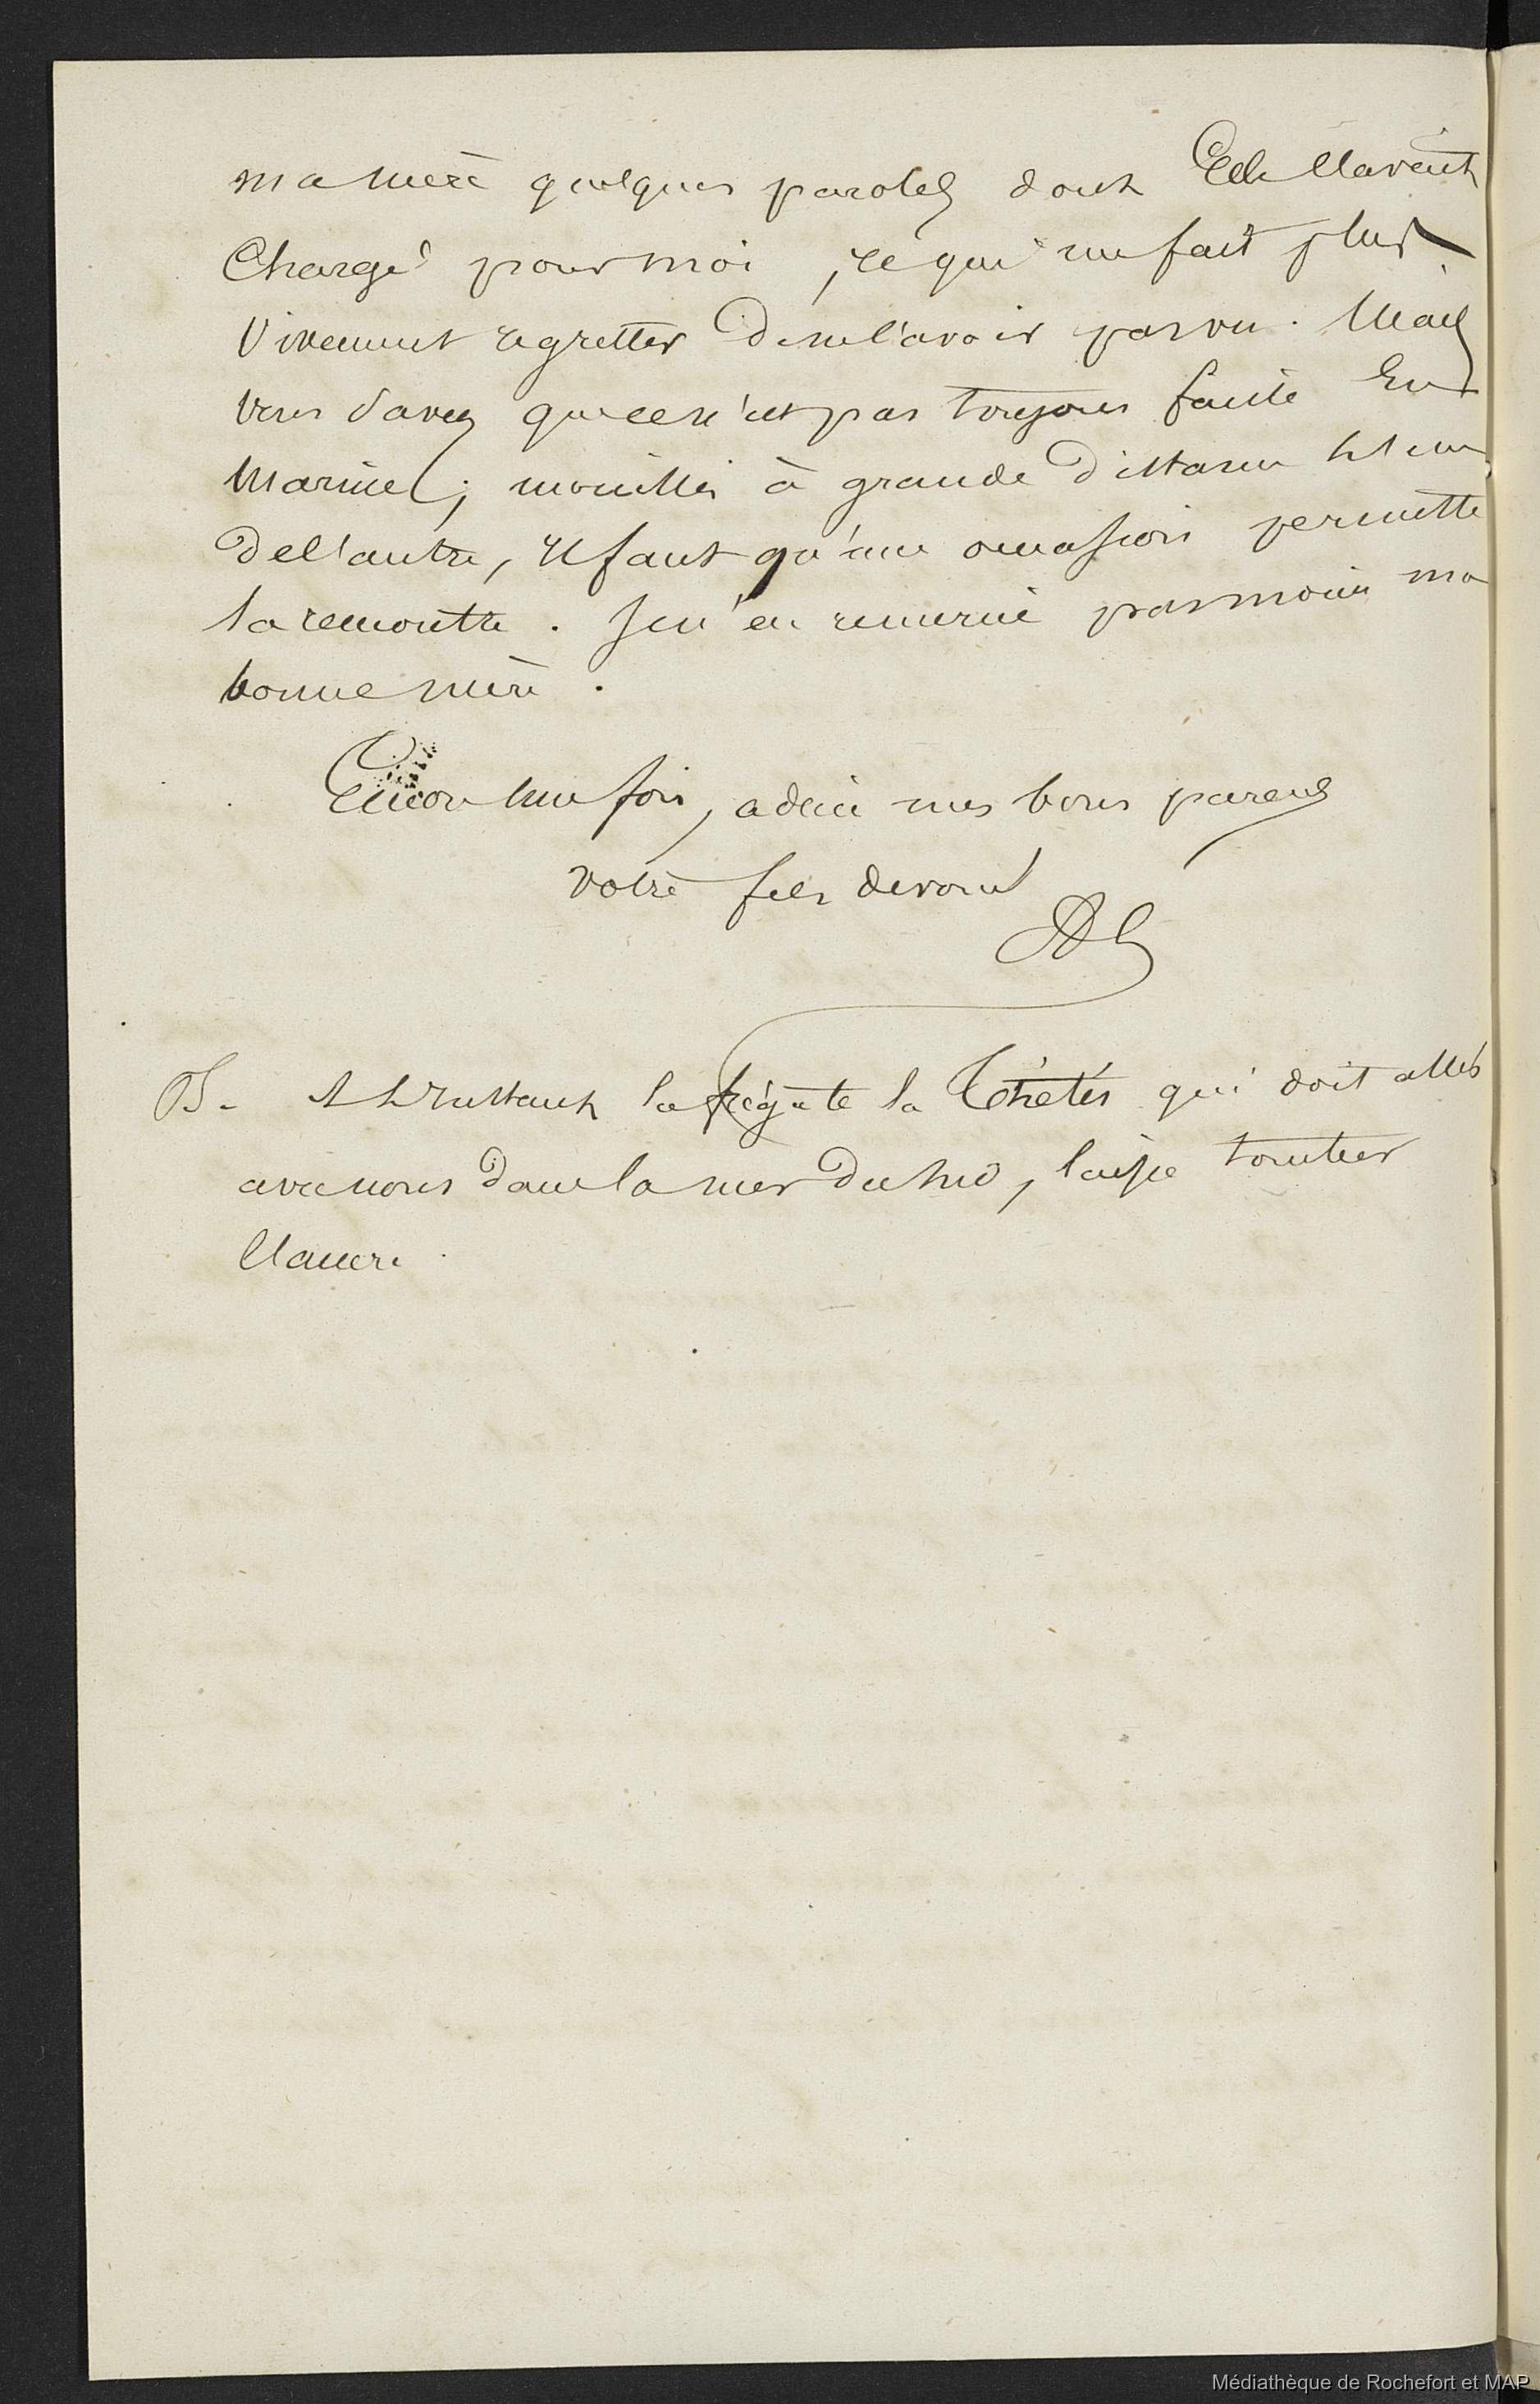 ma mère quelques paroles dont Elle l'avait
Chargé pour moi, ce qui me fait plus
Vivement regretter de ne l'avoir pas vu. Mais
vous savez que ce n'est pas toujours facile en
Marine; mouillés à grande distance l'un
de l'autre, il faut qu'une occasion permette
la rencontre. Je n'en remercie pas moins ma
bonne mère.
Encore une fois, adieu mes bons parens
votre fils dévoué
PS. À l'instant la frégate la Thétis qui doit aller
avec nous dans la mer du Sud, laisse tomber
l'ancre.
Médiathèque de Rochefort et MAP